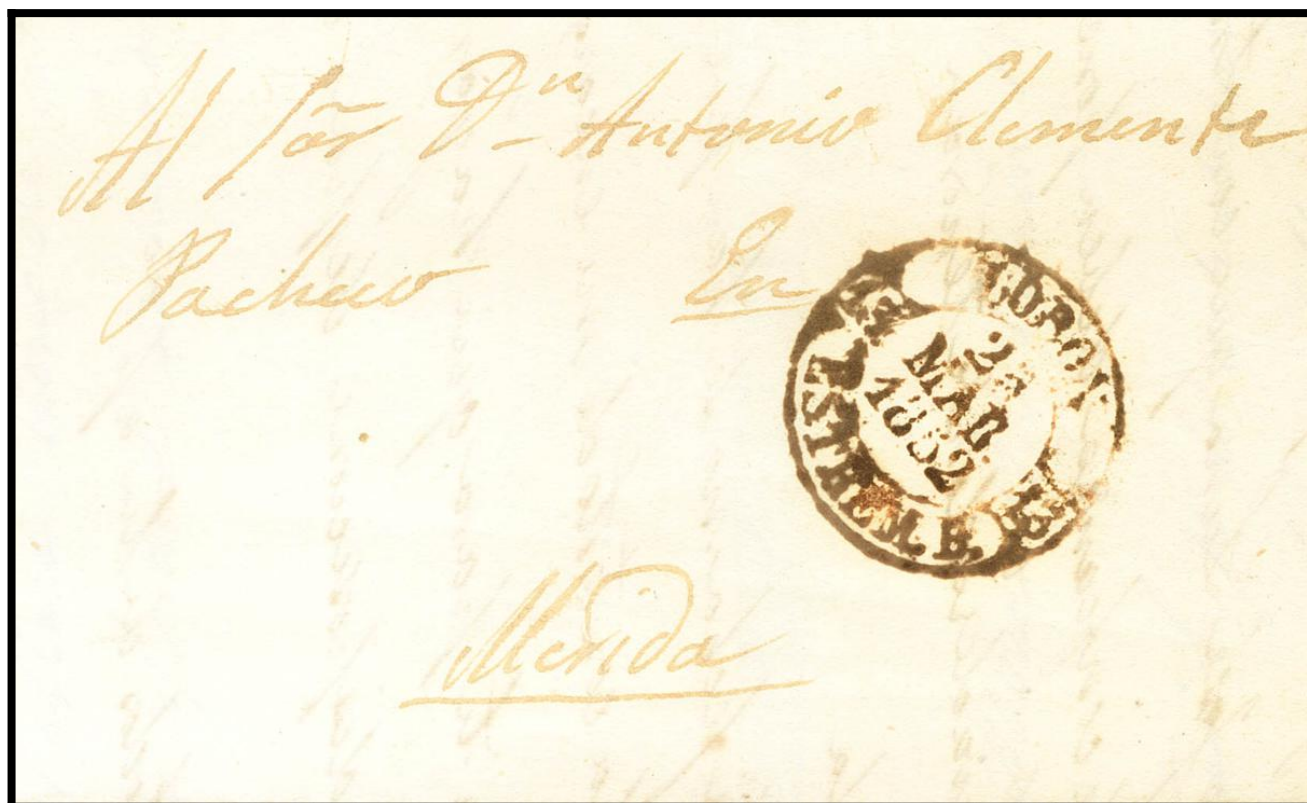 Al Sõr Dn Antonio Clemente
Pacheco En
LOBON
MAR
1852
ESTREM. B.
Merida